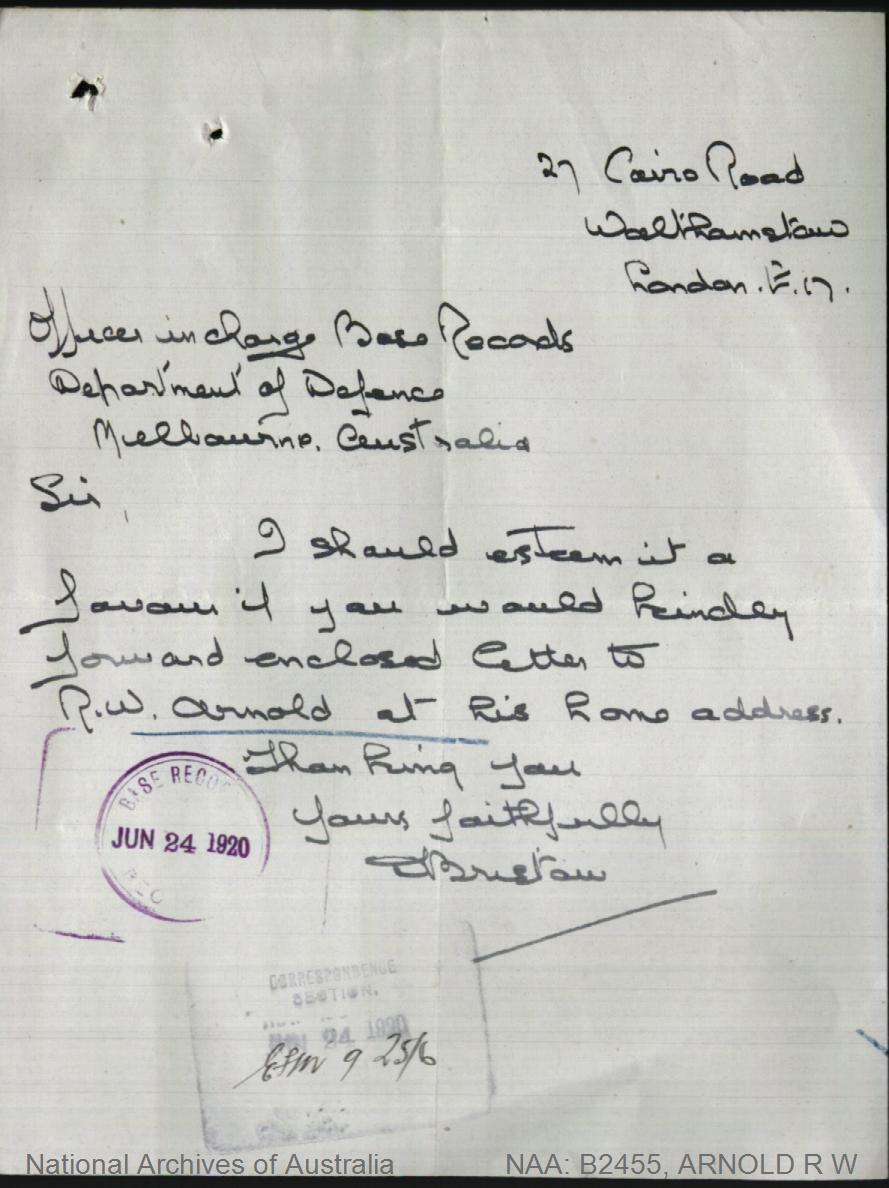 27 Cairo Road
Walthamstow
London. E.17.
Officer in charge Base Records
Department of Defence
Melbourne. Australia
Sir
I should esteem it a
favour if you would kindly
forward enclosed letter to
R.W. Arnold at his home address.
Thanking you
Yours faithfully
Bristow
BASE RECO
JUN 24 1920
REC
CORRESPONDENCE
SECTION.
JUN 24 1920
9 25/6
National Archives of Australia
NAA: B2455, ARNOLD R W